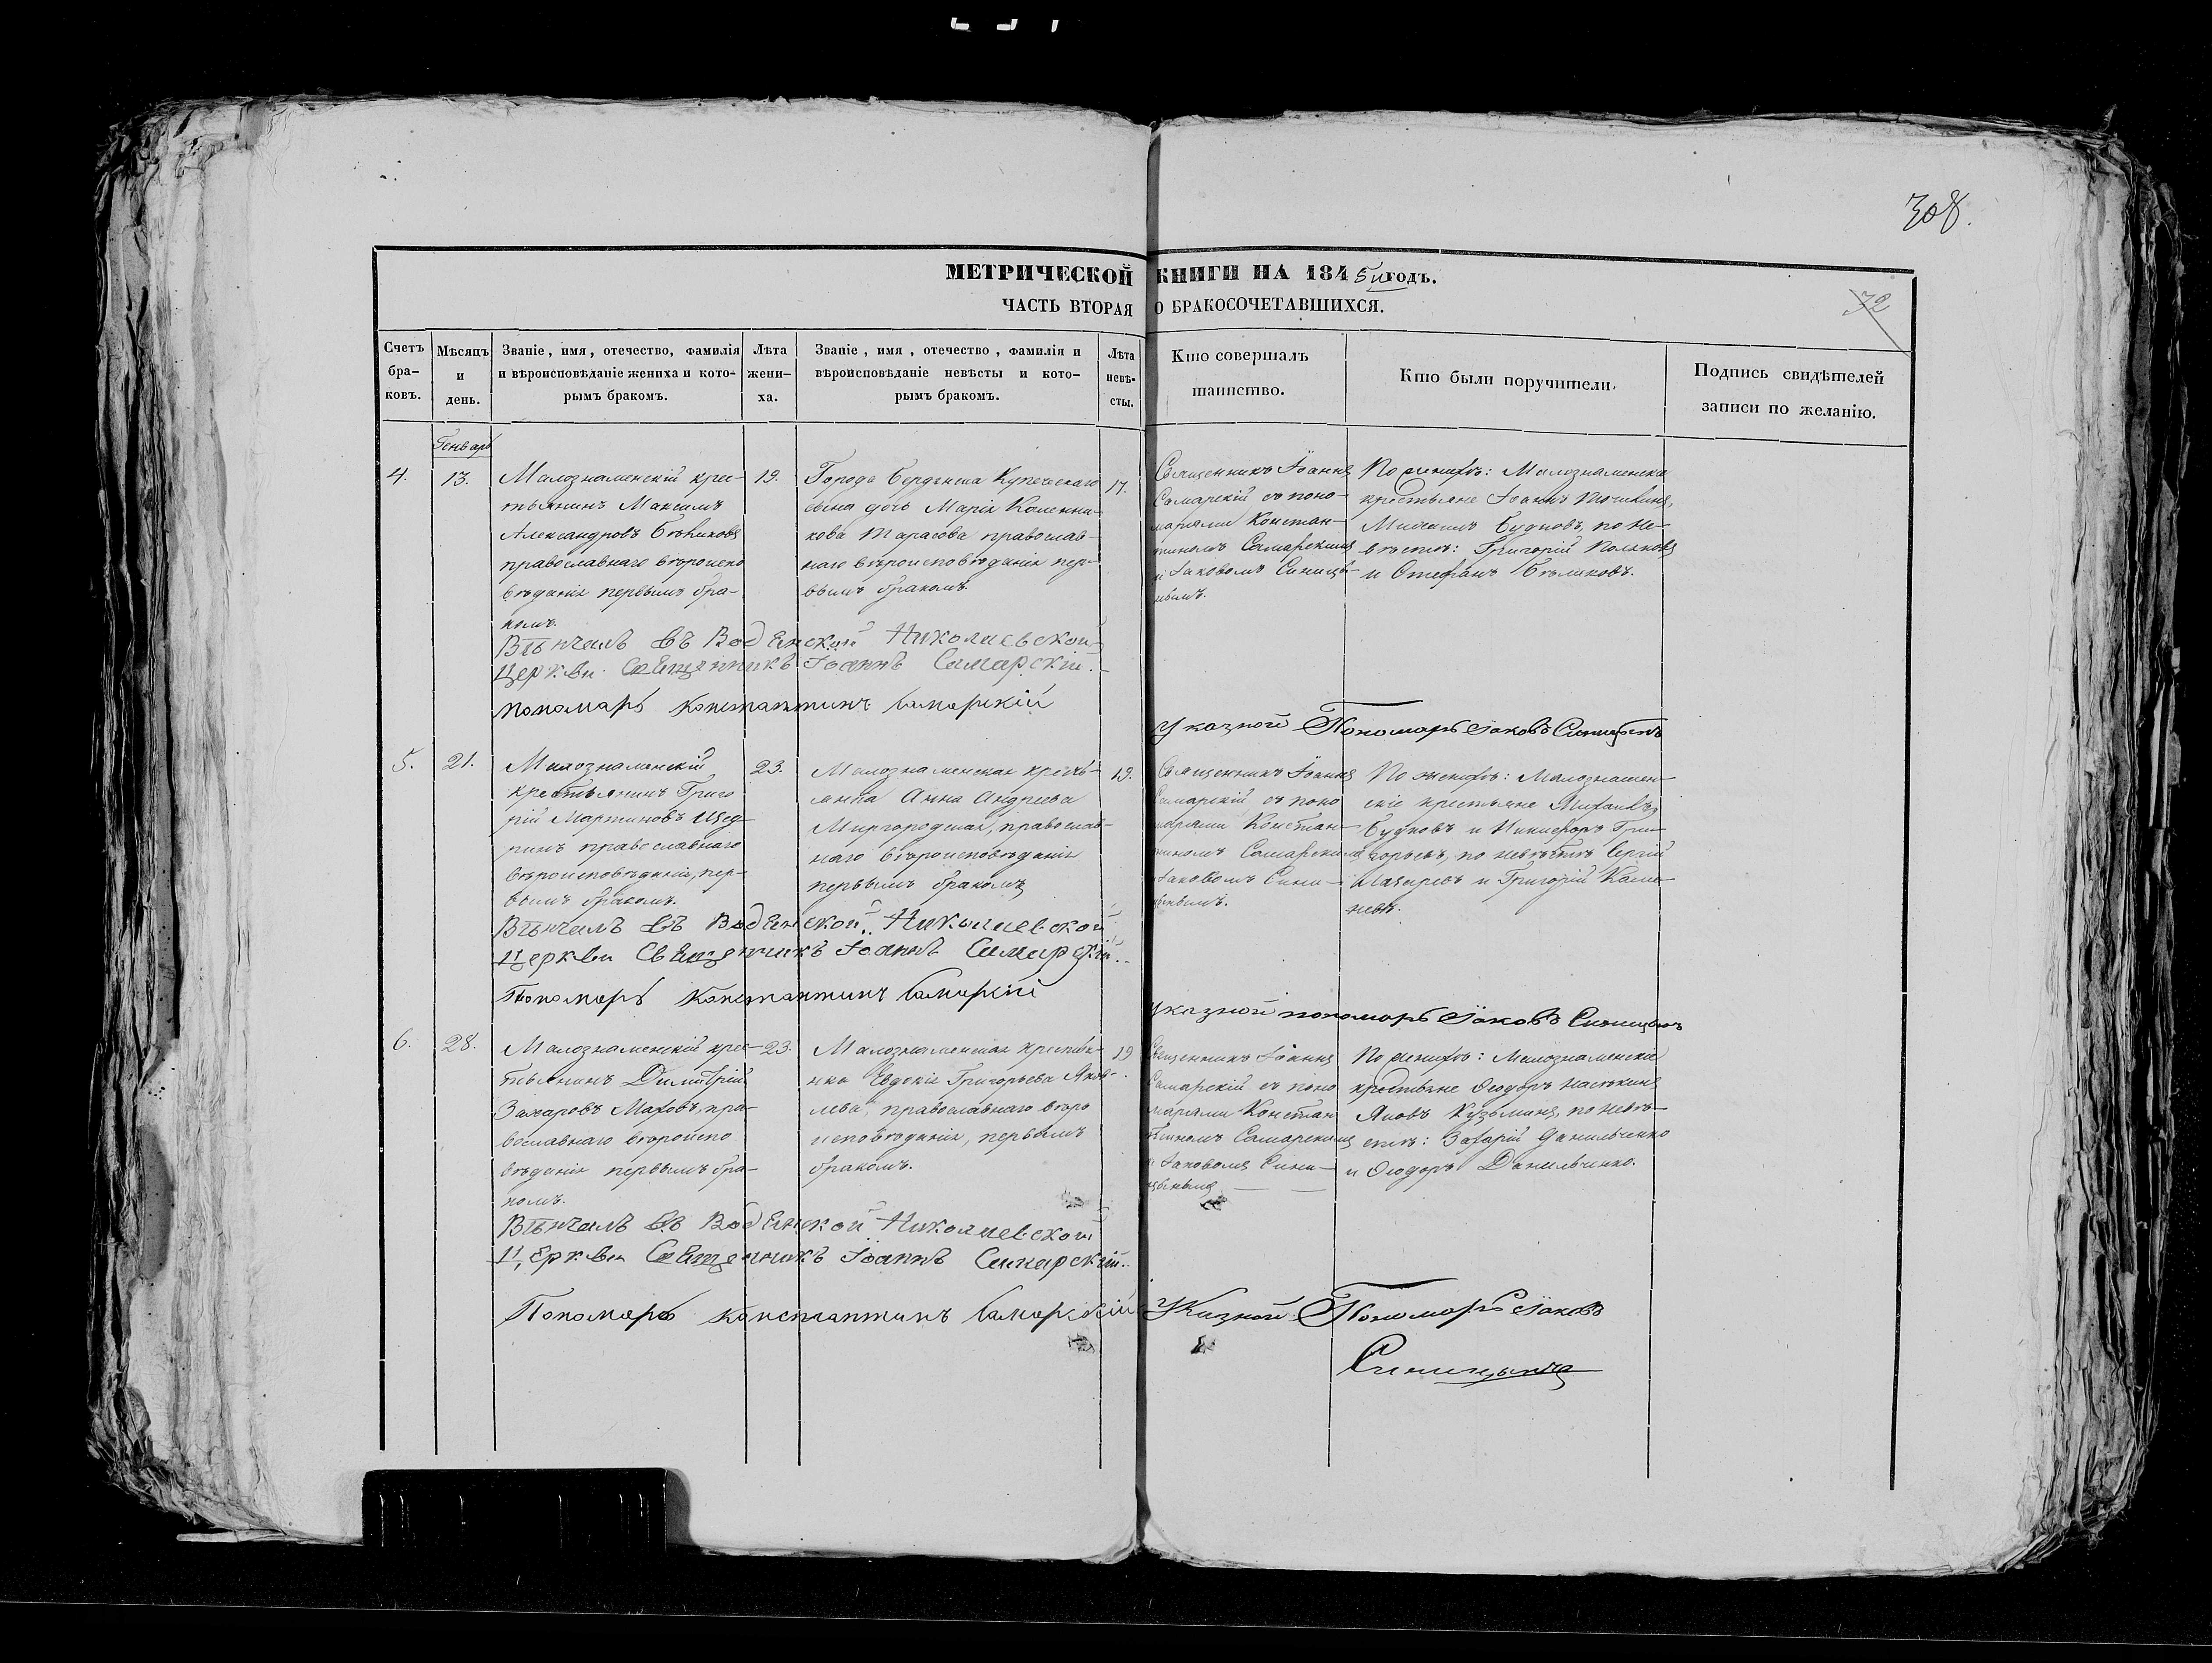 308.
МЕТРИЧЕСКОЙ КНИГИ НА 1845й годъ.
ЧАСТЬ ВТОРАЯ О БРАКОСОЧЕТАВШИХСЯ.
32
Счетъ бра- ковъ.
Мѣсяцъ и день.
Званіе, имя, отечество, фамилія и вѣроисповѣданіе жениха и кото- рымъ бракомъ.
Лѣта жени- ха.
Званіе, имя, отечество, фамилія и вѣроисповѣданіе невѣсты и кото- рымъ бракомъ.
Лѣта невѣ- сты.
Кто совершалъ таинство.
Кто были поручители.
Подпись свидѣтелей записи по желанію.
Генварь
4.
13.
Малознаменскій крес-
тьянинъ Максимъ
Александровъ
православнаго вѣроиспо
вѣданія первымъ бра-
комъ.
19.
Города Бердянска Купеческаго
сына дочь Марія
Тарасова православ-
наго вѣроисповѣданія пер-
вымъ бракомъ.
17.
Священникъ Іоаннъ
Самарскій съ поно-
марями Констан-
тиномъ Самарскимъ
и Іаковомъ Синицы-
нымъ.
По женихѣ: Малознаменскіе
крестьяне Іоаннъ
Будковъ, по не-
вѣстѣ: Григорій Поляковъ
и Стефанъ Бѣляковъ.
Вѣнчалъ въ Водянской Николаевской
Церкви Священникъ Іоаннъ Самарскій.
пономарь Константинъ Самарскій
Указной Пономарь Іаковъ Синицынъ
5.
21.
Малознаменскій
крестьянинъ Григо
рій Мартиновъ Щед-
ринъ православнаго
вѣроисповѣданія, пер-
вымъ бракомъ.
23.
Малознаменская кресть-
янка Анна Андреева
Миргородская, православ-
наго вѣроисповѣданія
первымъ бракомъ
19.
Священникъ Іоаннъ
Самарскій съ поно
марями Констан-
тиномъ Самарскимъ
Іаковомъ Сини-
цынымъ.
По женихѣ: Малознамен-
скіе крестьяне Михаилъ
Будковъ и Никифоръ Гри-
горьевъ, по невѣстѣ Сергій
и Григорій
Вѣнчалъ въ Водянской Николаевской
Церкви Священникъ Іоаннъ Самарскій.
Пономарь Константинъ Самарскій
указной пономарь Іаковъ Синицынъ
6.
28.
Малознаменскій крес-
тьянинъ Димитрій
Захаровъ Маховъ, пра-
вославнаго вѣроиспо
вѣданія первымъ бра-
комъ.
23.
Малознаменская крестья-
нка Евдокія Григорьева Яков-
лева, православнаго вѣро
исповѣданія, первымъ
бракомъ.
19.
Священникъ Іоаннъ
Самарскій съ поно
марями Констан
тиномъ Самарскимъ
и Іаковомъ Сини-
цынымъ
По женихѣ: Малознаменскіе
крестьяне Ѳеодоръ
Яковъ Кузьминъ, по невѣ-
стѣ: Захарій Данильченко
и Ѳеодоръ Данильченко.
Вѣнчалъ въ Водянской Николаевской
Церкви Священникъ Іоаннъ Самарскій.
Пономарь Константинъ Самарскій
Указной Пономарь Іаковъ
Синицынъ